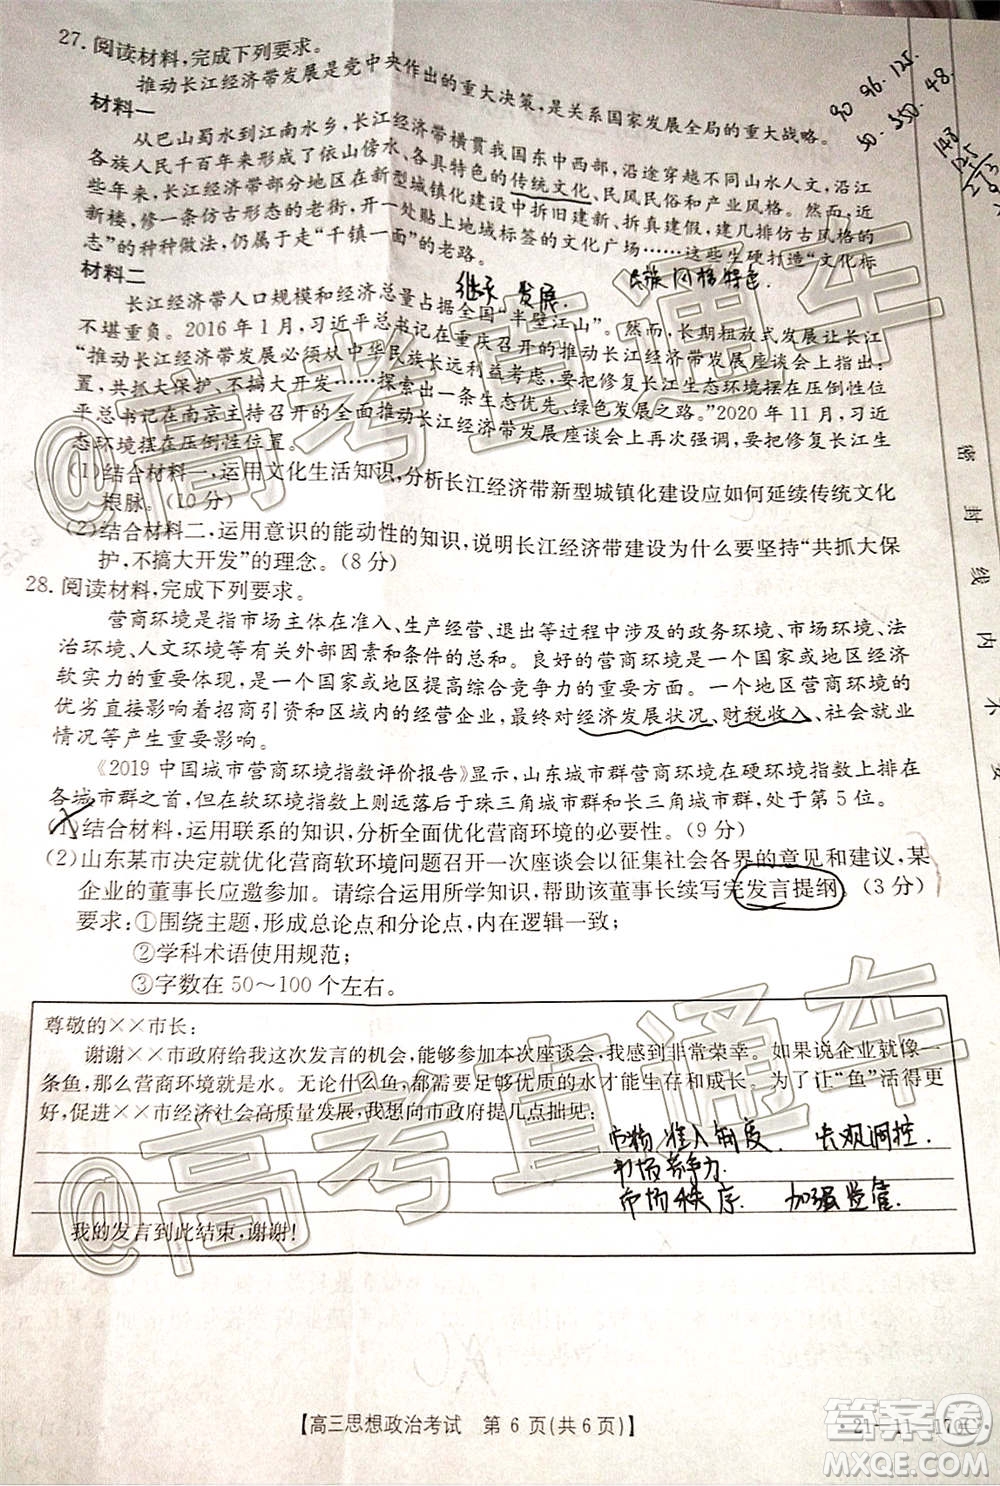 27. 阅读材料,完成下列要求。
推动长江经济带发展是党中央作出的重大决策,是关系国家发展全局的重大战略。
材料一
从巴山蜀水到江南水乡,长江经济带横贯我国东中西部,沿途穿越不同山水人文,沿江
各族人民千百年来依山傍水、各具特色的传统文化、民风民俗和产业风格。然而,近
些年来,长江经济带部分地区在新型城镇化建设中拆旧建新、拆真建假,建几排仿古风格的
新楼,修一条仿古形态的老街,开个处贴上地域标签的文化广场……这些生硬打造“文化标
志”的种种做法,仍属于走“千镇一面”的老路。
材料二
继承 发展
民族风格特色
长江经济带人口规模和经济总量占据全国“半壁江山”。然而,长期粗放式发展让长江
不堪重负。2016年1月,习近平总书记在重庆召开的推动长江经济带发展座谈会上指出:
“推动长江经济带发展必须从中华民族长远利益考虑,把修复长江生态环境摆在压倒性位
置,共抓大保护、不搞大开发……探索出一条生态优先、绿色发展之路。”2020年11月,习近
平总书记在南京主持召开的全面推动长江经济带发展座谈会上再次强调,要把修复长江生
态环境摆在压倒性位置。
(1)结合材料一,运用文化生活知识,分析长江经济带新型城镇化建设应如何延续传统文化
根脉。(10分)
(2)结合材料二,运用意识的能动性的知识,说明长江经济带建设为什么要坚持“共抓大保
护,不搞大开发”的理念。(8分)
28. 阅读材料,完成下列要求。
营商环境是指市场主体在准入、生产经营、退出等过程中涉及的政务环境、市场环境、法
治环境、人文环境等有关外部因素和条件的总和。良好的营商环境是一个国家或地区经济
软实力的重要体现,是一个国家或地区提高综合竞争力的重要方面。一个地区营商环境的
优劣直接影响着招商引资和区域内的经营企业,最终对经济发展状况、财税收入、社会就业
情况等产生重要影响。
《2019中国城市营商环境指数评价报告》显示,山东城市群营商环境在硬环境指数上排
各城市群之首,但在软环境指数上则落后于珠三角城市群和长三角城市群,处于第5位。
(1)结合材料,运用联系的知识,分析全面优化营商环境的必要性。(9分)
(2)山东某市决定就优化营商软环境问题召开一次座谈会以征集社会各界的意见和建议,某
企业的董事长应邀参加。请综合运用所学知识,帮助该董事长续写完发言提纲。(3分)
要求:①围绕主题,形成总论点和分论点,内在逻辑一致;
②学科术语使用规范;
③字数在50~100个左右。
尊敬的××市长:
谢谢××市政府给我这次发言的机会,能够参加本次座谈会,我感到非常荣幸。如果说企业就像一
条鱼,那么营商环境就是水。无论什么鱼都需要足够优质的水才能生存和发展。为了让“鱼”活得更
好,促进××市经济社会高质量发展,我想向市政府提几点拙见:
市场准入制度 宏观调控
市场竞争力
市场秩序 加强监管
我的发言到此结束,谢谢!
密封线内不要
90 96 125
50 350 48
【高三思想政治考试 第6页(共6页)】
·21-11-170C·
@高考直通车
@高考直通车
答案圈
MXQE.COM